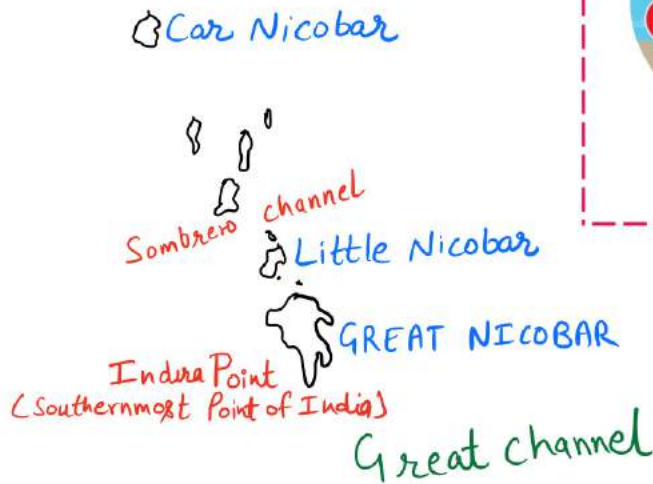 Car Nicobar
Sombrero channel
Little Nicobar
GREAT NICOBAR
Indira Point
(Southernmost Point of India)
Great channel